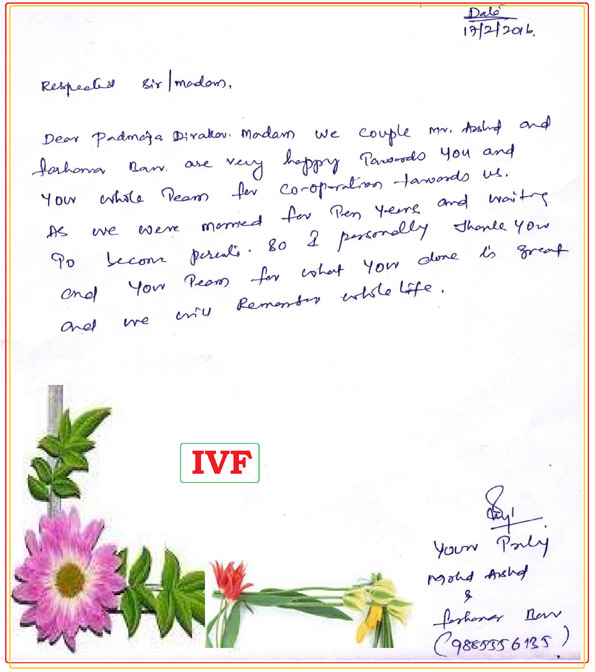 Date
17/2/2016.
Respected Sir/madam,
Dear Padmaja Divakar. Madam we couple Mr. Arshd and
farhana Ban. are very happy Towards you and
your whole Team for co-operation towards us.
As we were married for Ten years and waiting
to become perents. So I personally thank you
and your Team for what you done is great
and we will Remember whole life.
IVF
Your
Mohd Arshd
&
farhana Ban
(9885356135)